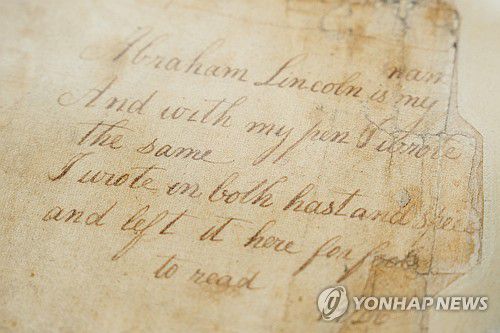 Abraham Lincoln is my nam
And with my pen I wrote
the same
I wrote in both hast and speed
and left it here for fools
to read
YONHAP NEWS